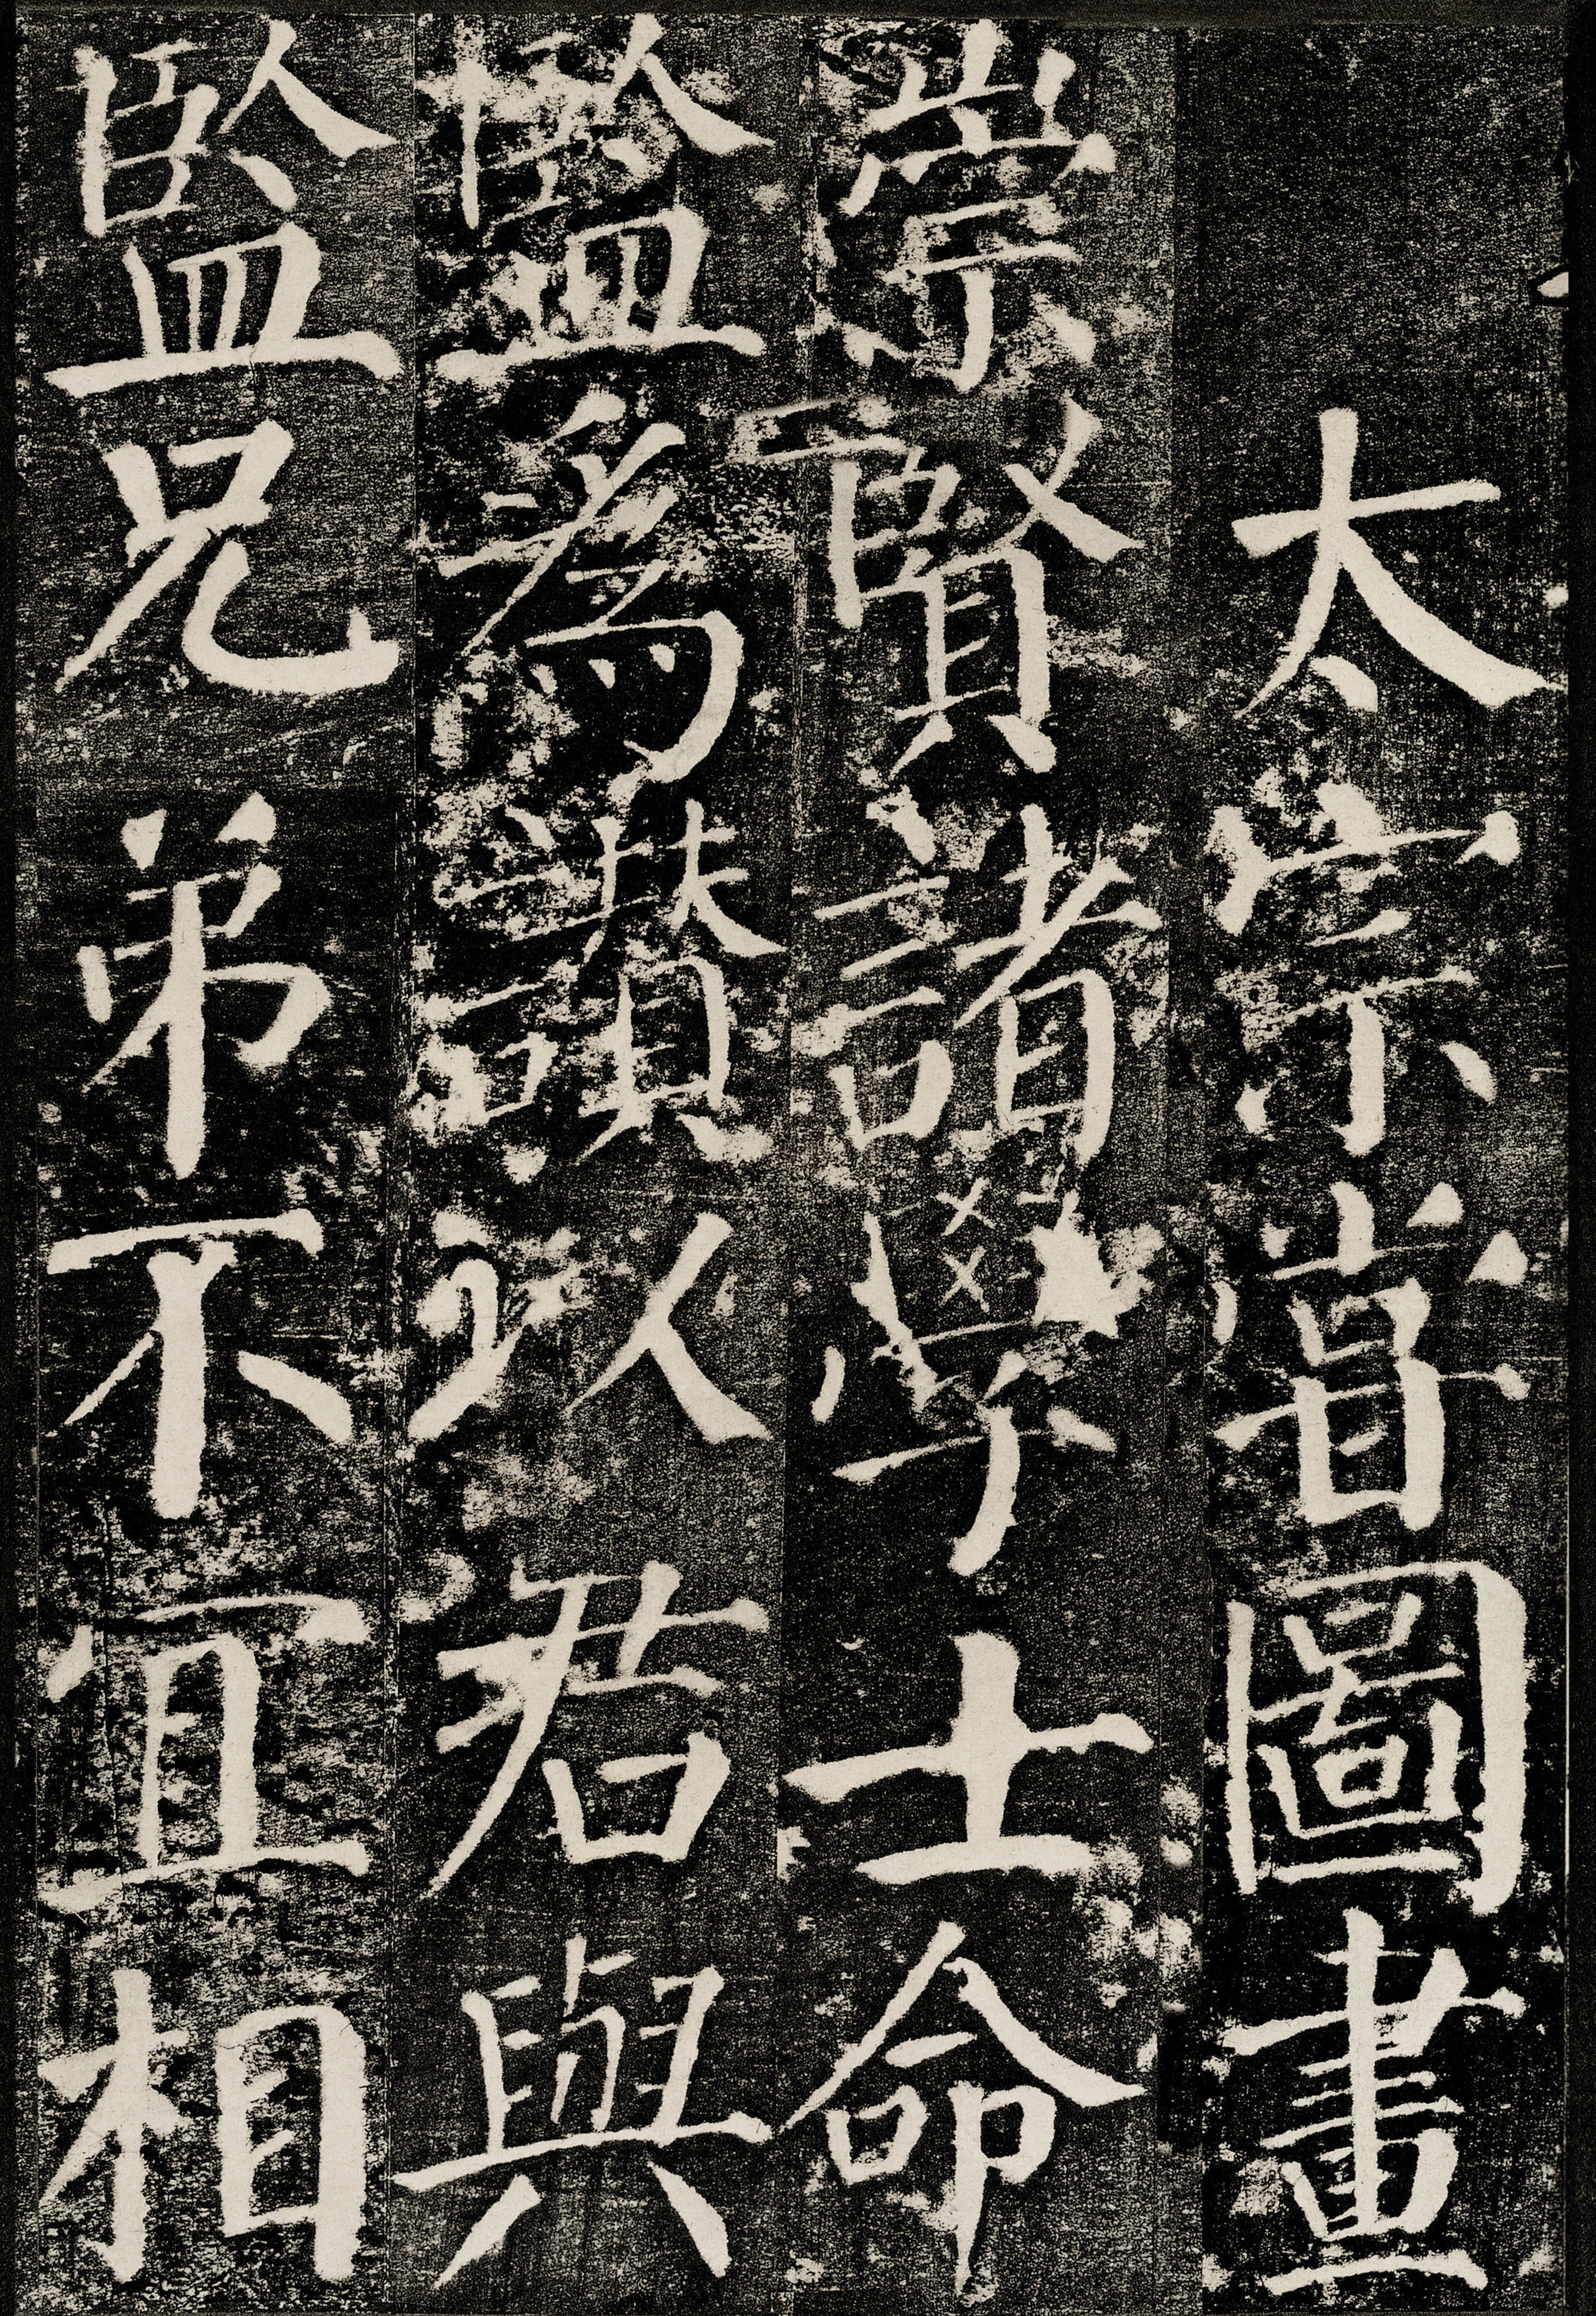 太宗嘗圖畫
崇賢諸學士命
監爲讚以君與
監兄弟不宜相